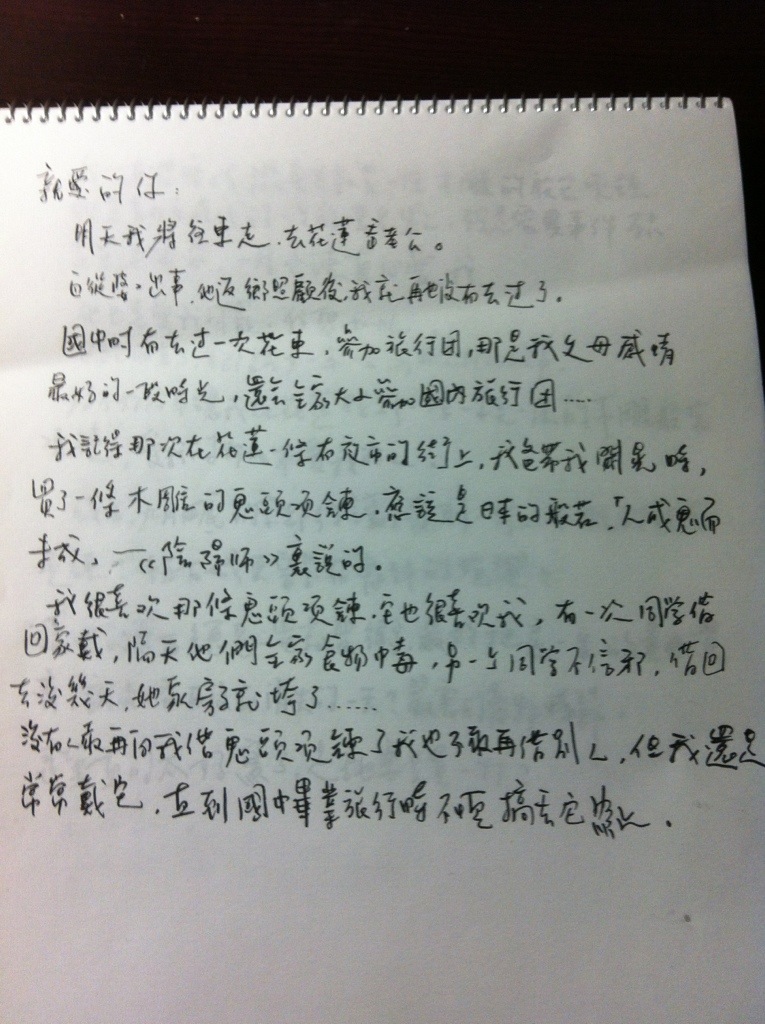 親愛的你：
明天我將往東走，去花蓮看老公。
自從婆婆出事，他返鄉照顧後，我就再也沒有去过了。
國中时有去过一次花東，參加旅行团，那是我父母感情
最好的一段時光，還会全家大小參加國內旅行团……
我記得那次在花蓮一條有夜市的街上，我爸帶我閒晃時，
買了一條木雕的鬼頭项鍊，應該是日本的般若，「人成鬼而
未成」——《陰陽师》裏說的。
我很喜欢那條鬼頭项鍊，它也很喜欢我，有一次同学借
回家戴，隔天他們全家食物中毒，另一个同学不信邪，借回
去沒幾天，她家房子就垮了……
沒有人敢再向我借鬼頭项鍊了我也不敢再借別人，但我還是
常常戴它，直到國中畢業旅行時不慎搞丢它為止。